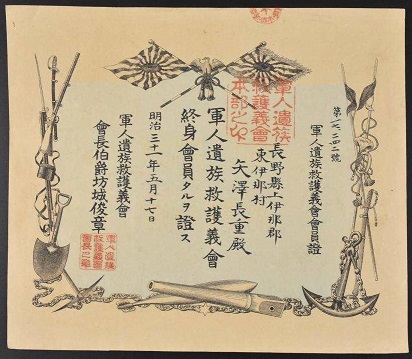 軍人遺族救護義會會員證
軍人遺族
救護義會
本部之印
長野縣上伊那郡
東伊那村
矢澤長重殿
軍人遺族救護義會
終身會員タルヲ證ス
明治三十一年五月十七日
軍人遺族救護義會
會長伯爵坊城俊章